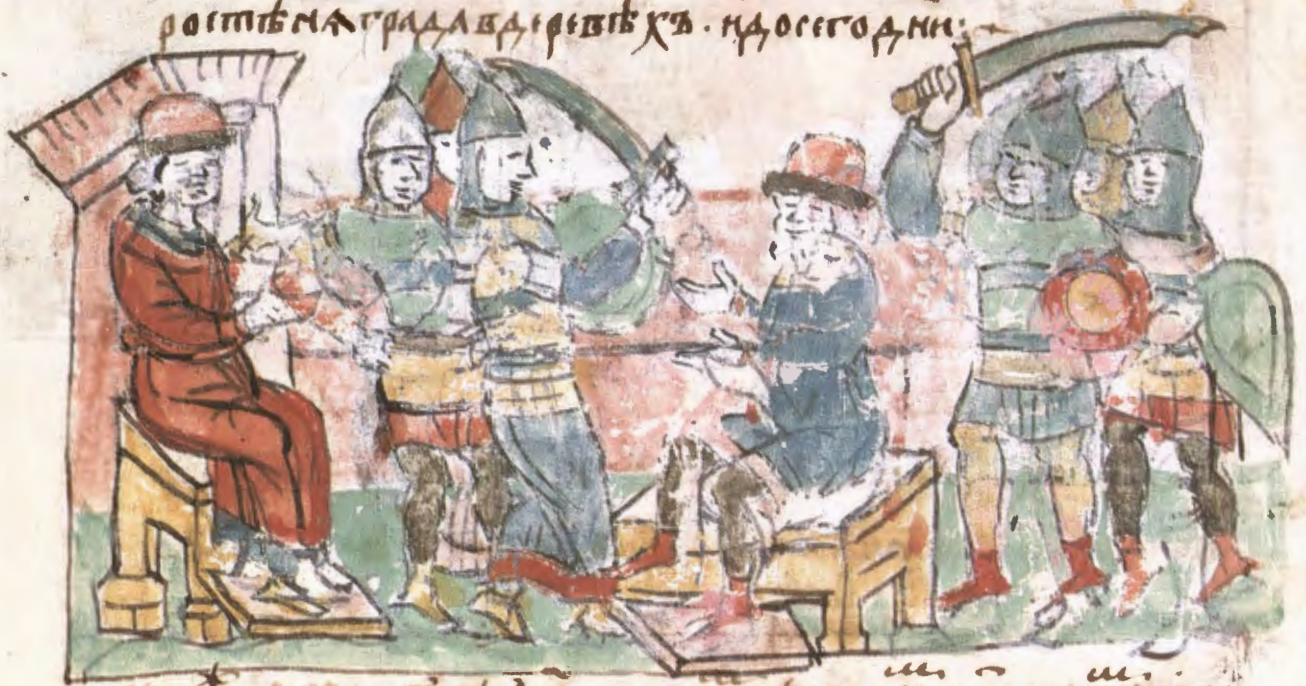 ростѣнѧ града вдеревѣхъ · идосегодни :~